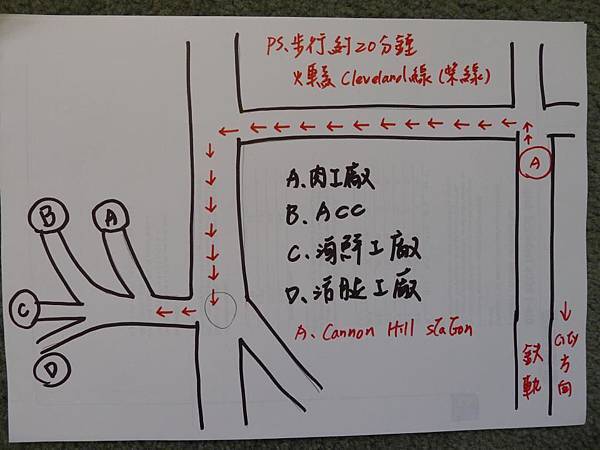 PS、步行約20分鐘
火車 Cleveland線(紫線)
A
A、肉工廠
B、ACC
C、海鮮工廠
D、活肚工廠
A、Cannon Hill station
B
A
C
D
鉄軌
↓City方向